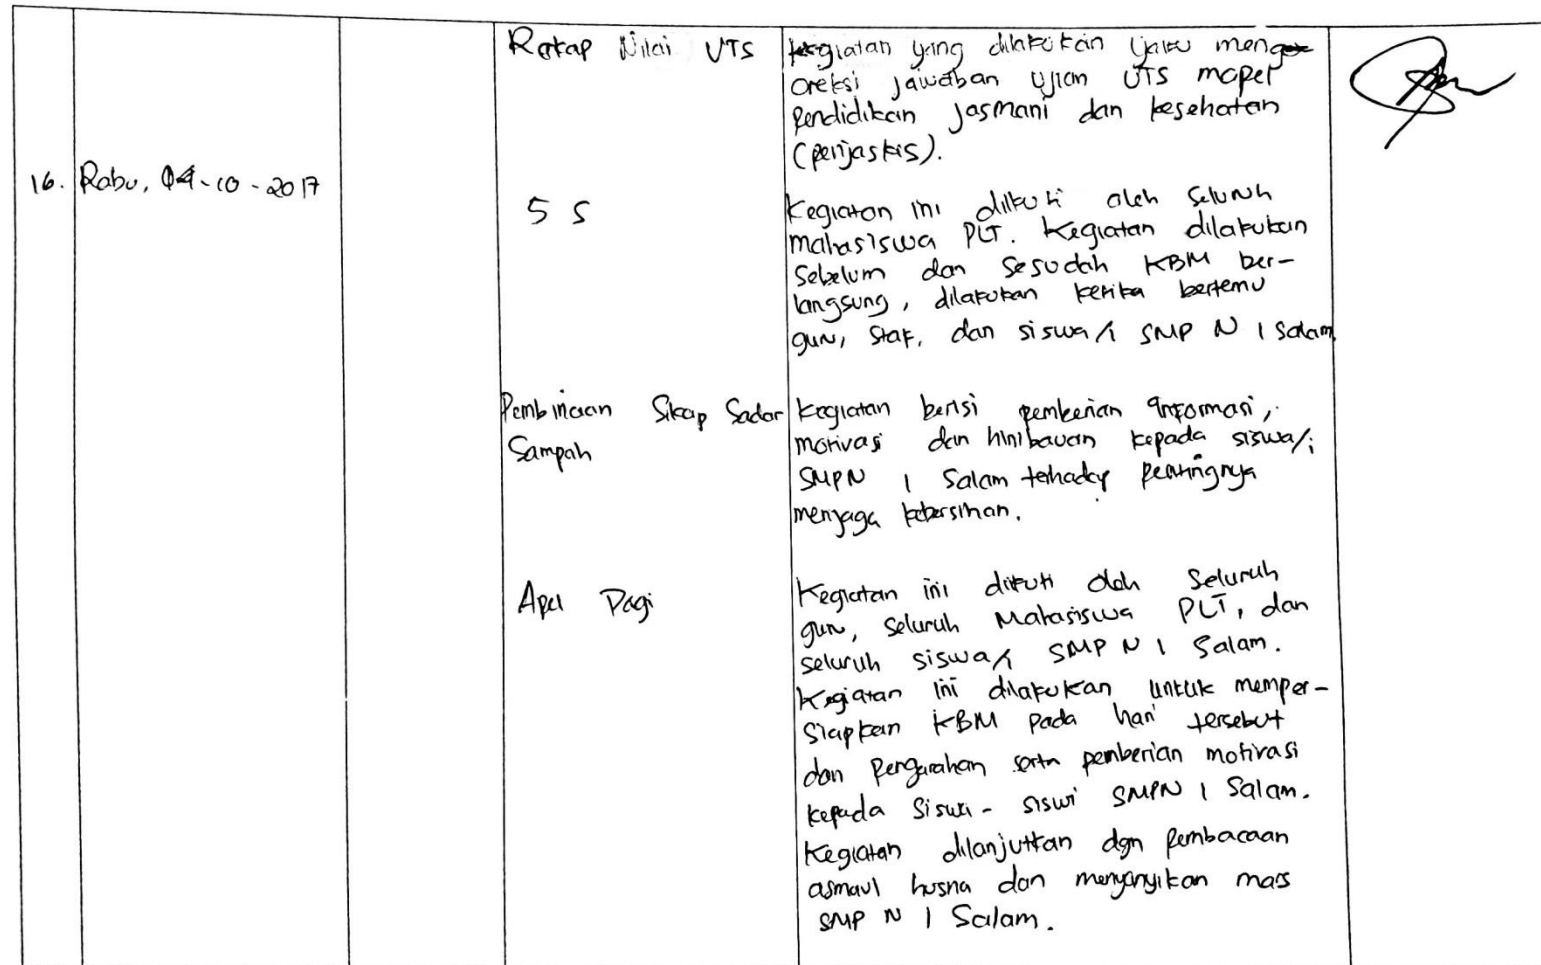 Rekap Nilai UTS
Kegiatan yang dilakukan yaitu meng-
oreksi jawaban ujian UTS mapel
Pendidikan Jasmani dan kesehatan
(penjaskes).
16. Rabu, 04-10-2017
5 S
Kegiatan ini diikuti oleh seluruh
mahasiswa PLT. Kegiatan dilakukan
sebelum dan sesudah KBM ber-
langsung, dilakukan ketika bertemu
guru, staf, dan siswa/i SMP N 1 Salam
Pembinaan Sikap Sadar
Sampah
Kegiatan berisi pemberian informasi,
motivasi dan himbauan kepada siswa/i
SMPN 1 Salam terhadap pentingnya
menjaga kebersihan.
Apel Pagi
Kegiatan ini diikuti oleh seluruh
guru, seluruh Mahasiswa PLT, dan
seluruh siswa/i SMP N 1 Salam.
Kegiatan ini dilakukan untuk memper-
siapkan KBM pada hari tersebut
dan pengarahan serta pemberian motivasi
kepada siswa - siswi SMPN 1 Salam.
Kegiatan dilanjutkan dgn pembacaan
asmaul husna dan menyanyikan mars
SMP N 1 Salam.